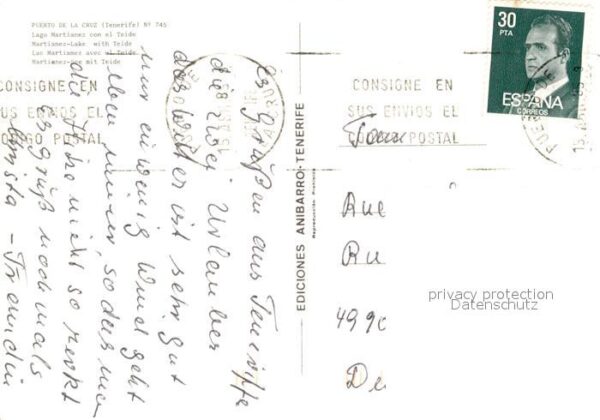 PUERTO DE LA CRUZ (Tenerife) Nº 745
Lago Martianez con el Teide
Martianez-Lake with Teide
Lac Martianez avec el Teide
Martianez-See mit Teide
CONSIGNE EN
SUS ENVIOS EL
CODIGO POSTAL
CONSIGNE EN
SUS ENVIOS EL
CODIGO POSTAL
30
PTA
ESPAÑA
CORREOS
EDICIONES ANIBARRO-TENERIFE
Reproducción Prohibida
Es Grüßen aus Teneriffe
die zwei Urlauber
das Wetter ist sehr gut
nur ein wenig Wind geht
immer, so das man
die nicht so merkt
Es grüßt nochmals
Christa -
Fam
Rue
Ru
499
De
privacy protection
Datenschutz